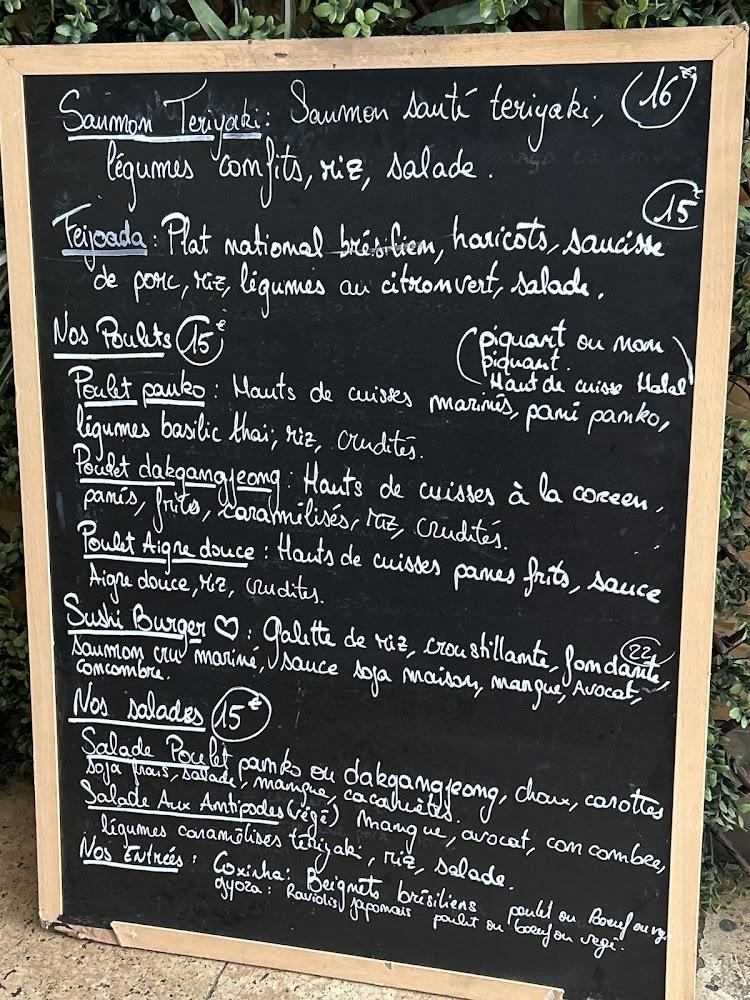 Saumon Teriyaki : Saumon sauté teriyaki, 16€
légumes confits, riz, salade.
15€
Feijoada : Plat national brésilien, haricots, saucisse
de porc, riz, légumes au citron vert, salade.
Nos Poulets 15€ (piquant ou non
piquant.
Haut de cuisse Halal)
Poulet panko : Hauts de cuisses marinés, pané panko,
légumes basilic thai, riz, crudités.
Poulet dakgangjeong : Hauts de cuisses à la coreen,
panés, frits, caramélisés, riz, crudités.
Poulet Aigre douce : Hauts de cuisses panes frits, sauce
Aigre douce, riz, crudites.
Sushi Burger ♡ : Galette de riz, croustillante, fondante, 22
saumon cru mariné, sauce soja maison, mangue, Avocat,
concombre.
Nos salades 15€
Salade Poulet panko ou dakgangjeong, choux, carottes
soja frais, salade, mangue, cacahuètes.
Salade Aux Antipodes (végé) Mangue, avocat, concombre,
légumes caramélises tériyaki, riz, salade.
Nos Entrées : Coxinha : Beignets brésiliens poulet ou Boeuf ou vg
gyoza : Raviolis japonais poulet ou boeuf ou vegé.